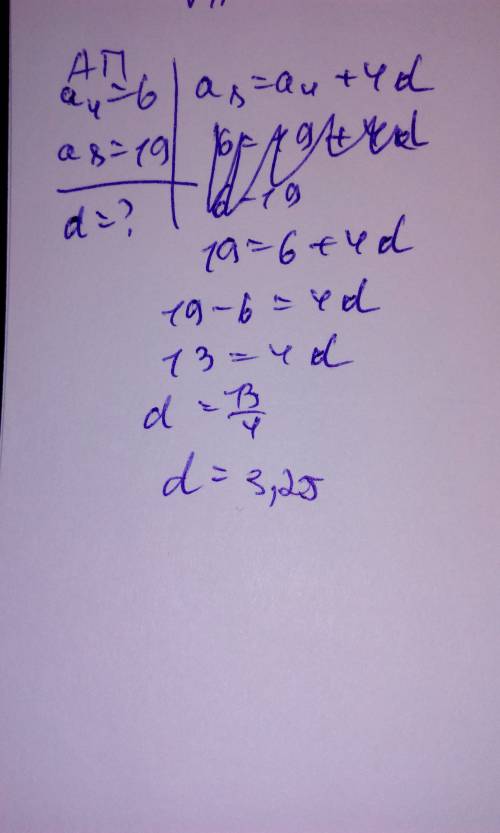 АП
a₄=6
a₈=19
d=?
a₈=a₄+4d
19=6+4d
19-6=4d
13=4d
d=13/4
d=3,25